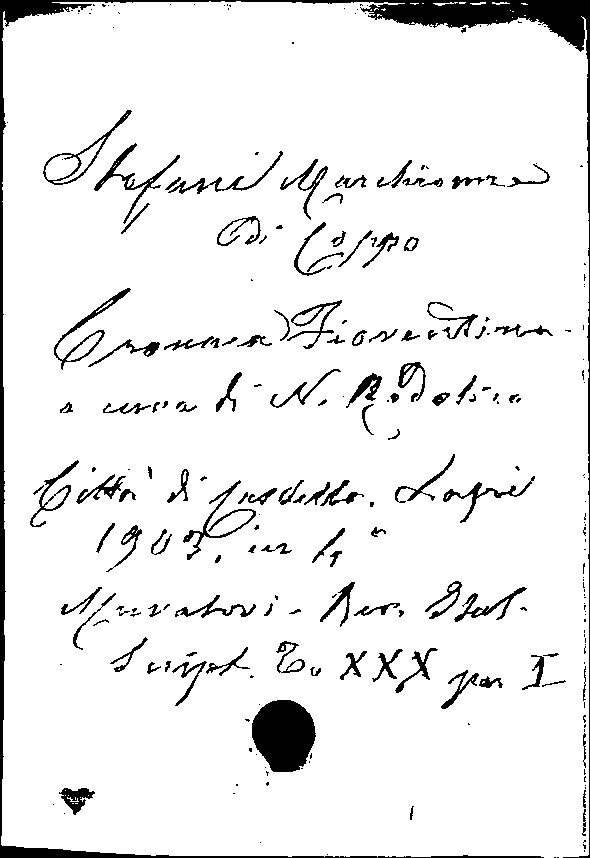 Stefani Marchionne
di Coppo
Cronaca Fiorentina
a cura di N. Rodolico
Città di Castello. Lapi
1903. in 4°
Muratori - Rer. Ital.
Script. T. XXX par I